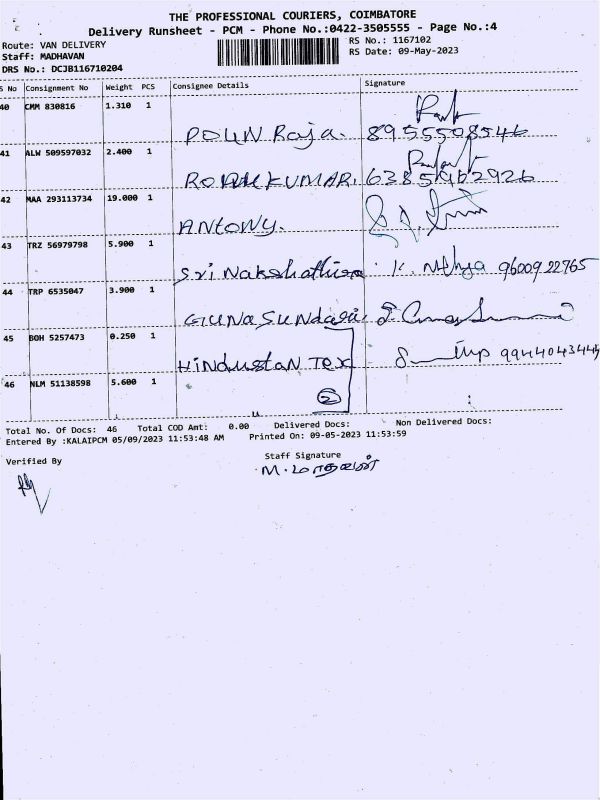 THE PROFESSIONAL COURIERS, COIMBATORE
Delivery Runsheet - PCM - Phone No.:0422-3505555 - Page No.:4
Route: VAN DELIVERY RS No.: 1167102
Staff: MADHAVAN RS Date: 09-May-2023
DRS No.: DCJB116710204
S No Consignment No Weight PCS Consignee Details Signature
40 CMM 830816 1.310 1
POUN Raja. 8955508546
41 ALW 509597032 2.400 1
KUMAR. 6385962926
42 MAA 293113734 19.000 1
ANtOWY.
43 TRZ 56979798 5.900 1
Sri Nakshathira K. Nithya 9600922765
44 TRP 6535047 3.900 1
GUNA SUNdari
45 BOH 5257473 0.250 1
HINdustaN Tex 9944043444
46 NLM 51138598 5.600 1
2
Total No. Of Docs: 46 Total COD Amt: 0.00 Delivered Docs: Non Delivered Docs:
Entered By :KALAIPCM 05/09/2023 11:53:48 AM Printed On: 09-05-2023 11:53:59
Verified By Staff Signature
M. மாதவன்